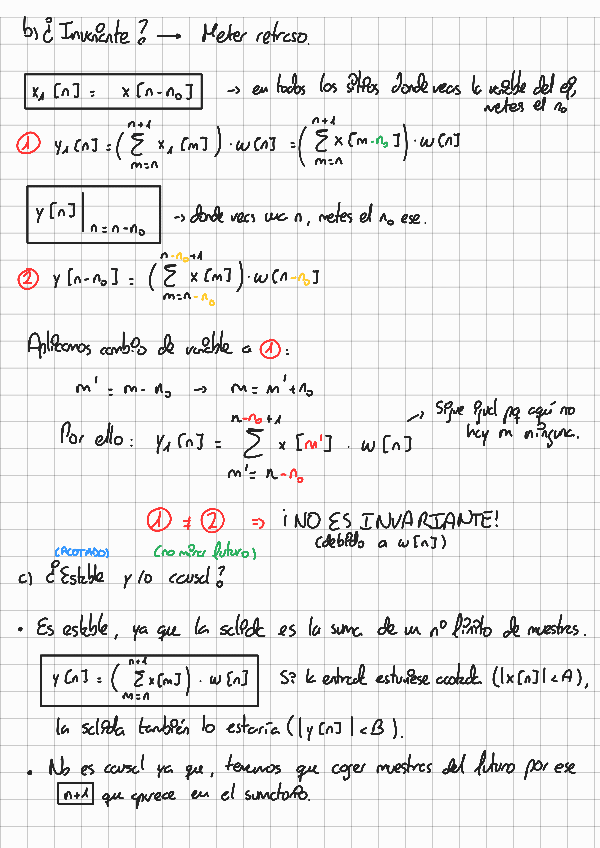 b) ¿Invariante? → Meter retraso.
x₁[n] = x[n-n₀] → en todos los sitios donde veas la variable del eje,
metes el n₀
① y₁[n] = (∑_{m=n}^{n+1} x₁[m]) · w[n] = (∑_{m=n}^{n+1} x[m-n₀]) · w[n]
y[n]|_{n=n-n₀} → donde veas una n, metes el n₀ ese.
② y[n-n₀] = (∑_{m=n-n₀}^{n-n₀+1} x[m]) · w[n-n₀]
Aplicamos cambio de variable a ①:
m' = m - n₀ → m = m' + n₀
Por ello: y₁[n] = ∑_{m'=n-n₀}^{n-n₀+1} x[m'] · w[n] → Sigue igual pq aquí no
hay m ninguna.
① ≠ ② ⇒ ¡NO ES INVARIANTE!
(debido a w[n])
(ACOTADO) (no mirar futuro)
c) ¿Estable y/o causal?
• Es estable, ya que la salida es la suma de un nº finito de muestras.
y[n] = (∑_{m=n}^{n+1} x[m]) · w[n] Si la entrada estuviese acotada (|x[n]| < A),
la salida también lo estaría (|y[n]| < B).
• No es causal ya que, tenemos que coger muestras del futuro por ese
n+1 que aparece en el sumatorio.